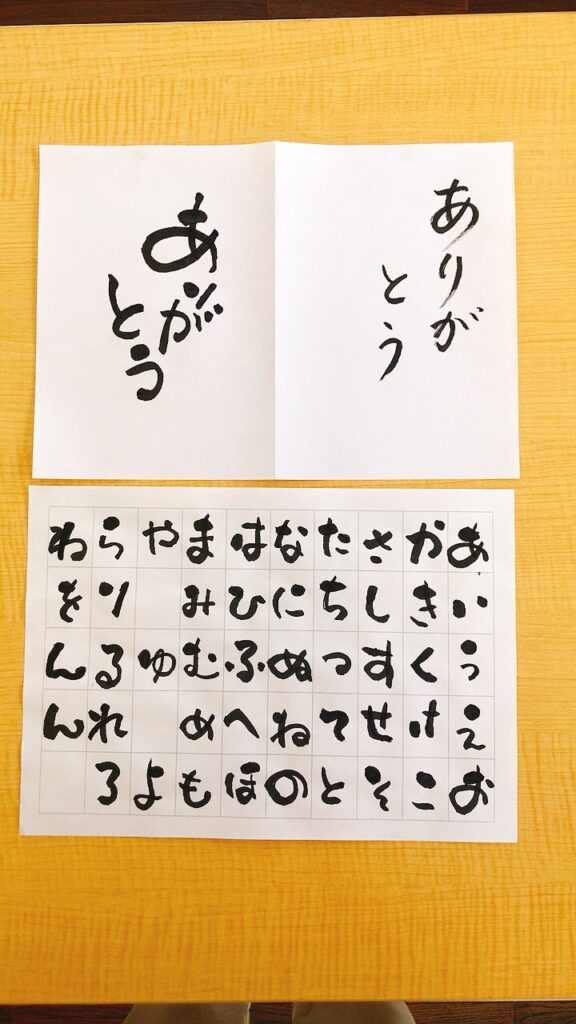 ありが
とう
ありが
とう
あいうえお
かきくけこ
さしすせそ
たちつてと
なにぬねの
はひふへほ
まみむめも
やゆよ
らりるれろ
わをんん